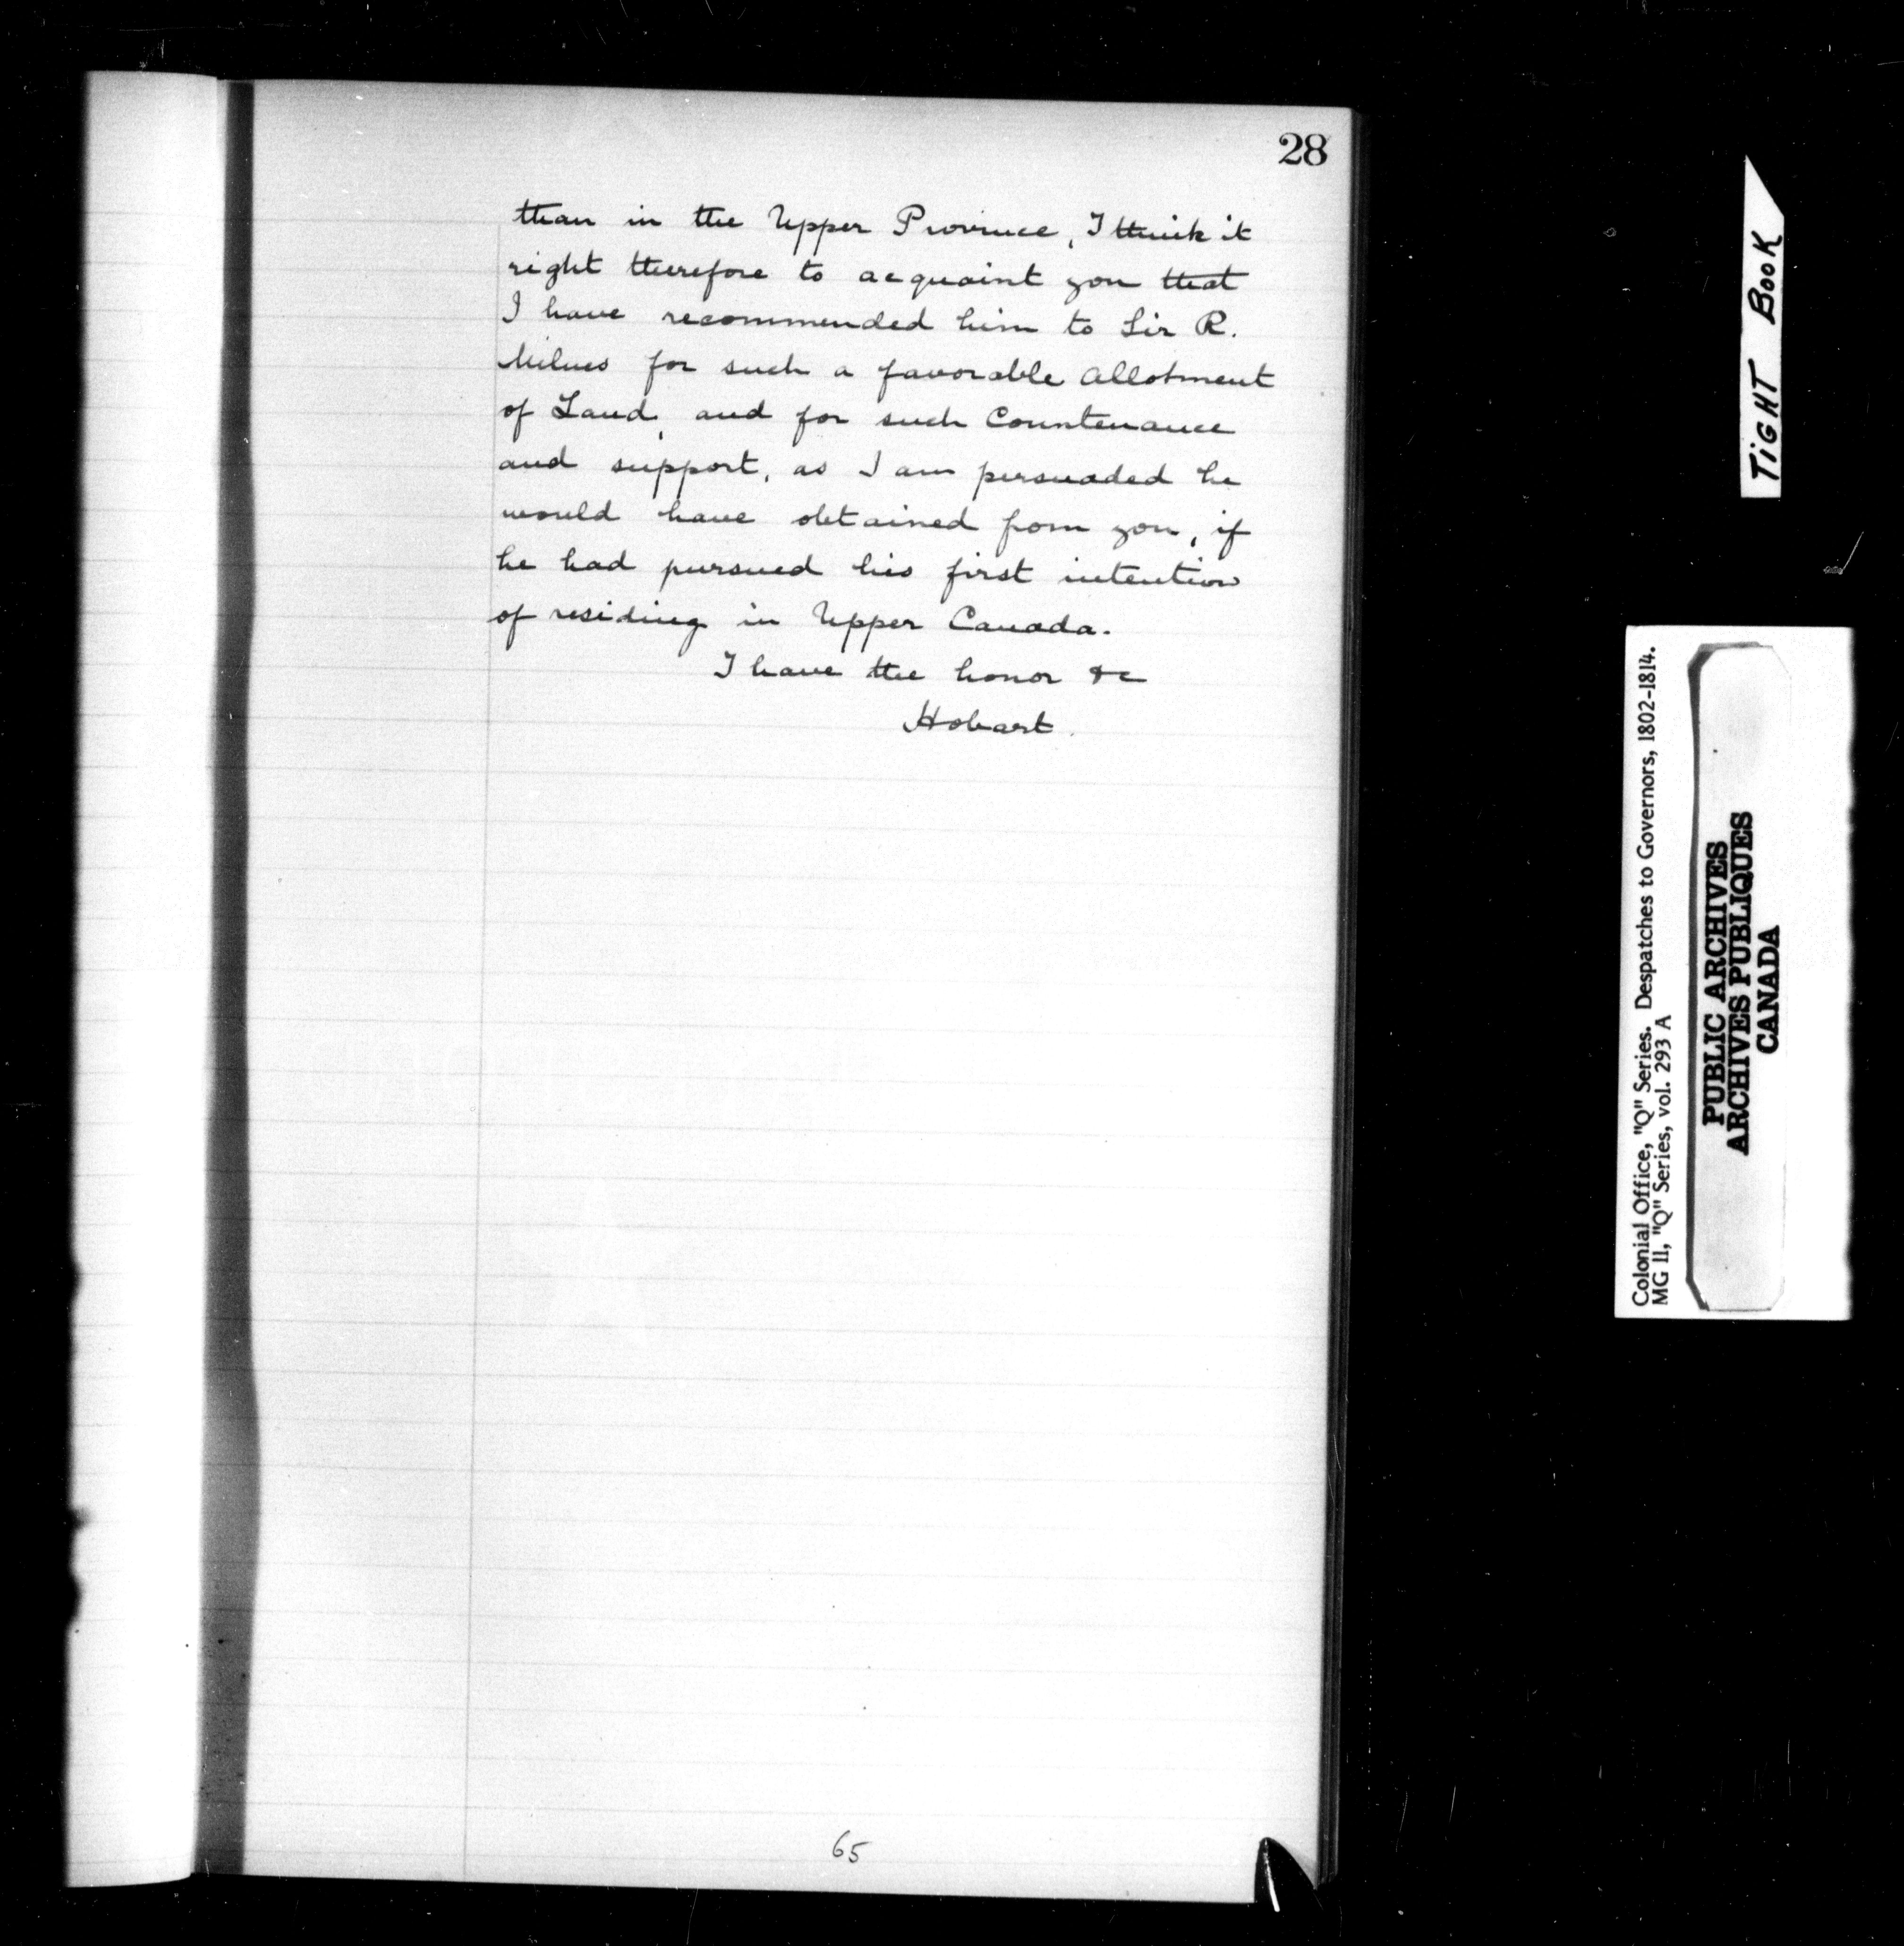 28
than in the Upper Province, I think it
right therefore to acquaint you that
I have recommended him to Sir R.
Milnes for such a favorable allotment
of Land, and for such Countenance
and support, as I am persuaded he
would have obtained from you, if
he had pursued his first intention
of residing in Upper Canada.
I have the honor &c
Hobart.
65
TIGHT BOOK
Colonial Office, "Q" Series. Despatches to Governors, 1802-1814.
MG 11, "Q" Series, vol. 293 A
PUBLIC ARCHIVES
ARCHIVES PUBLIQUES
CANADA